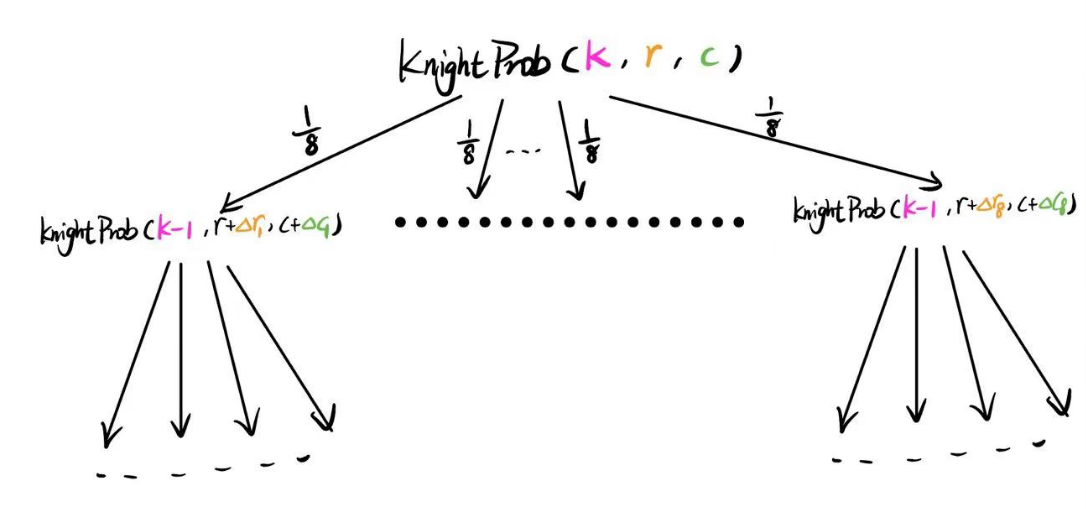 KnightProb (k, r, c)
1/8 1/8 ---- 1/8 1/8
KnightProb (k-1, r+Δr₁, c+Δc₁) KnightProb (k-1, r+Δr₈, c+Δc₈)